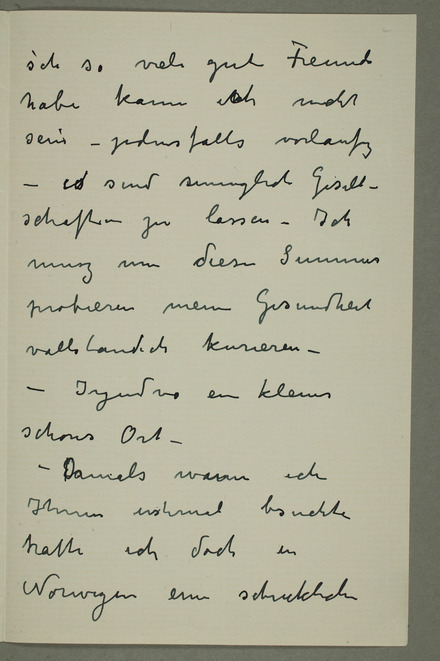 ich so viele gute Freunde
habe kann ich nicht
sein – jedensfalls vorlaufig
– es sind unmuglich Gesell-
schaften zu lassen – Ich
musz nun diesen Sommer
probieren meine Gesundheit
vollstandich kurieren –
– Irgendvo ein kleines
schones Ort –
– Damels wann ich
Ihnen erstemal besuchte
hatte ich doch in
Norwegen eine schreckliche